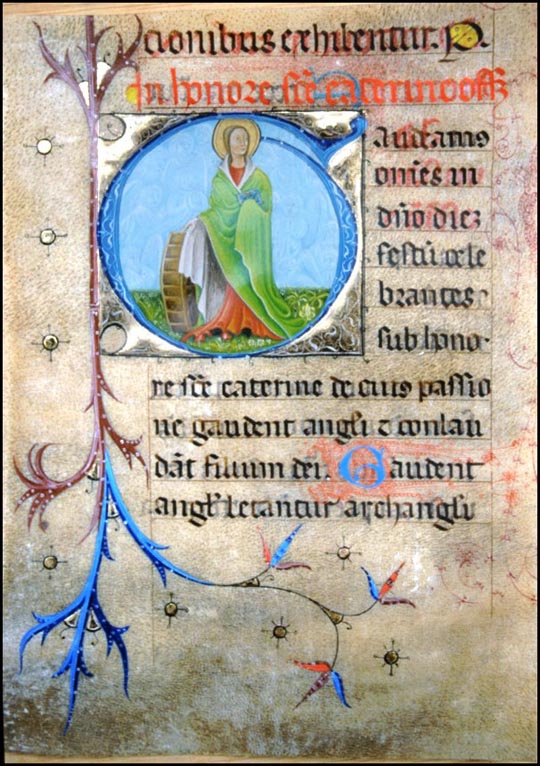 cionibus exhibentur. P.
In honore scē caterine offz
Gaudeamus
om̄es in
dn̄o diez
festū cele
brantes
sub hono-
re scē caterine de cuius passio
ne gaudent angl̓i ⁊ conlau
dāt filium dei. Gaudent
angl̓i letantur archangl̓i